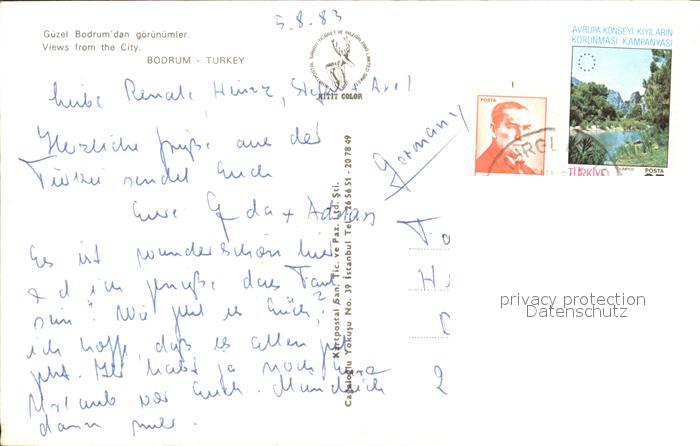 5.8.83
Güzel Bodrum'dan görünümler.
Views from the City.
BODRUM - TURKEY
KEYIT COLOR
AVRUPA KONSEYİ KIYILARIN
KORUNMASI KAMPANYASI
POSTA
TÜRKİYE
POSTA
Liebe Renate, Heinz, Sigrid + Axel
Herzliche Grüße aus der
Türkei sendet Euch
Eure Gerda + Adrian
Germany
Es ist wunderschön hier
ich
Wie geht es Euch?
ich hoffe, daß es allen gut
geht. Ihr habt ja noch Eure
Urlaub vor Euch. Mündlich
dann mehr.
Kartpostal San. Tic. ve Paz. Ltd. Şti.
Cağaloğlu Yokuşu No. 39 İstanbul Tel. 26 56 51 - 20 78 49
To
H
D
2
privacy protection
Datenschutz